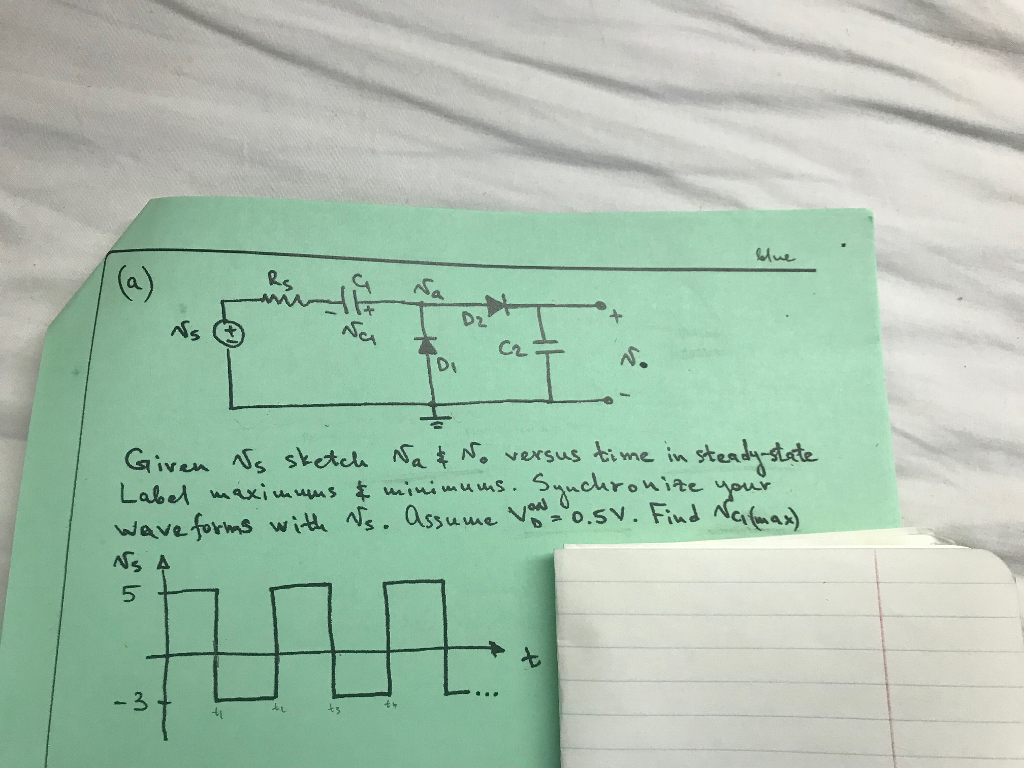 blue
(a)
Rs C1 va
D2 +
vs - + vC1
D1 C2 vo
-
Given vs sketch va & vo versus time in steady-state
Label maximums & minimums. Synchronize your
waveforms with vs. Assume VD^ON = 0.5V. Find vC1(max)
vs
5
t
-3
t1 t2 t3 t4 ...